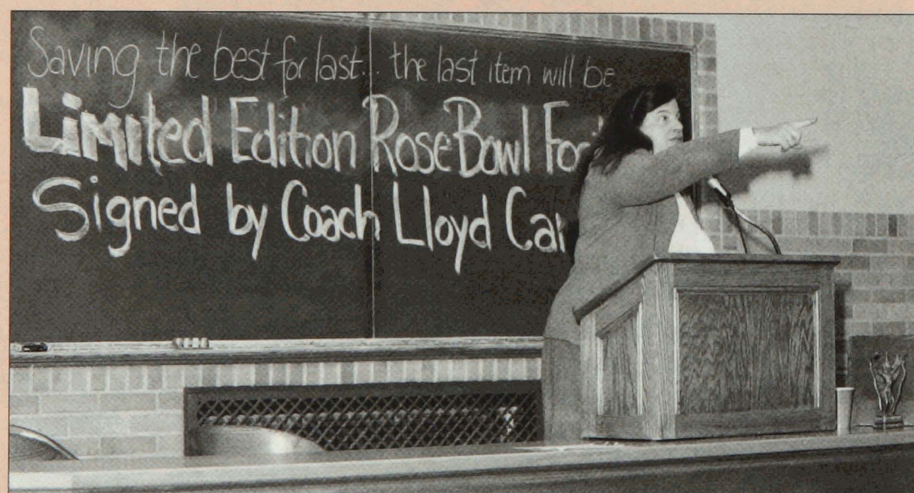 Saving the best for last... the last item will be
Limited Edition Rose Bowl
Signed by Coach Lloyd